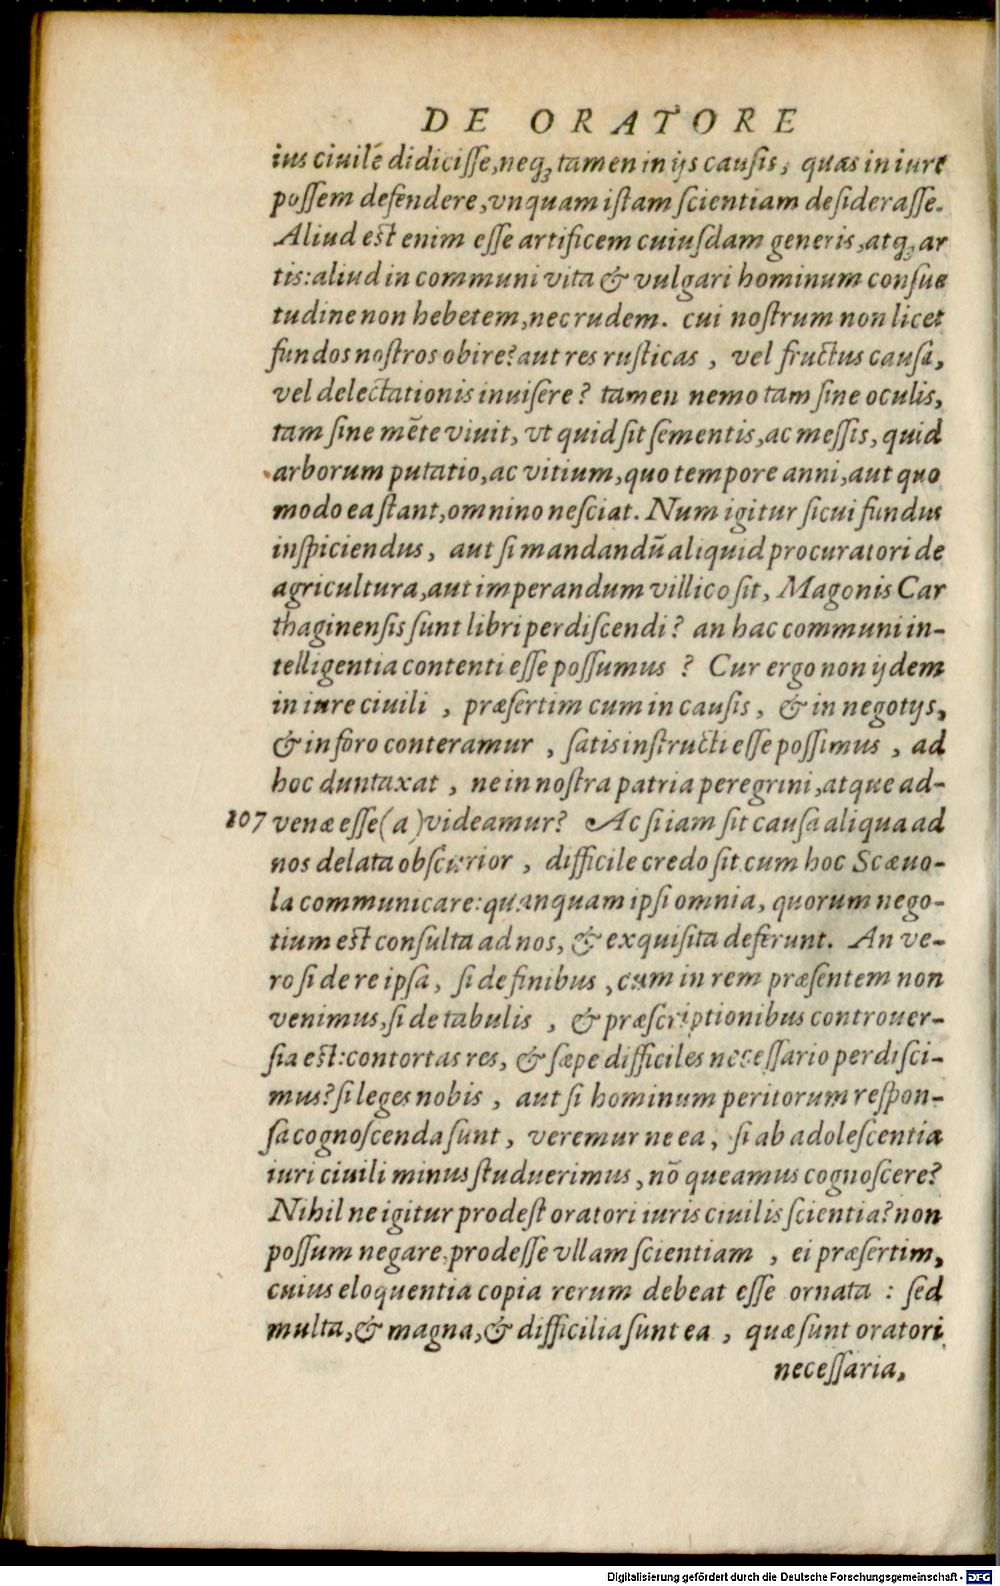 DE ORATORE
ius ciuilē didicisse, neq; tamen in ijs causis, quas in iure
possem defendere, vnquam istam scientiam desiderasse.
Aliud est enim esse artificem cuiusdam generis, atq; ar
tis: aliud in communi vita & vulgari hominum consue
tudine non hebetem, nec rudem. cui nostrum non licet
fundos nostros obire? aut res rusticas, vel fructus causa,
vel delectationis inuisere? tamen nemo tam sine oculis,
tam sine mēte viuit, vt quid sit sementis, ac messis, quid
arborum putatio, ac vitium, quo tempore anni, aut quo
modo ea stant, omnino nesciat. Num igitur sicui fundus
inspiciendus, aut si mandandū aliquid procuratori de
agricultura, aut imperandum villico sit, Magonis Car
thaginensis sunt libri perdiscendi? an hac communi in-
telligentia contenti esse possumus? Cur ergo non ijdem
in iure ciuili, præsertim cum in causis, & in negotijs,
& in foro conteramur, satis instructi esse possimus, ad
hoc duntaxat, ne in nostra patria peregrini, atque ad-
107 venæ esse (a) videamur? Ac si iam sit causa aliqua ad
nos delata obscurior, difficile credo sit cum hoc Scæuo-
la communicare: quanquam ipsi omnia, quorum nego-
tium est consulta ad nos, & exquisita deferunt. An ve-
ro si de re ipsa, si de finibus, cum in rem præsentem non
venimus, si de tabulis, & præscriptionibus controuer-
sia est: contortas res, & sæpe difficiles necessario perdisci-
mus? si leges nobis, aut si hominum peritorum respon-
sa cognoscenda sunt, veremur ne ea, si ab adolescentia
iuri ciuili minus studuerimus, nō queamus cognoscere?
Nihil ne igitur prodest oratori iuris ciuilis scientia? non
possum negare prodesse vllam scientiam, ei præsertim,
cuius eloquentia copia rerum debeat esse ornata: sed
multa, & magna, & difficilia sunt ea, quæ sunt oratori
necessaria,
Digitalisierung gefördert durch die Deutsche Forschungsgemeinschaft - DFG